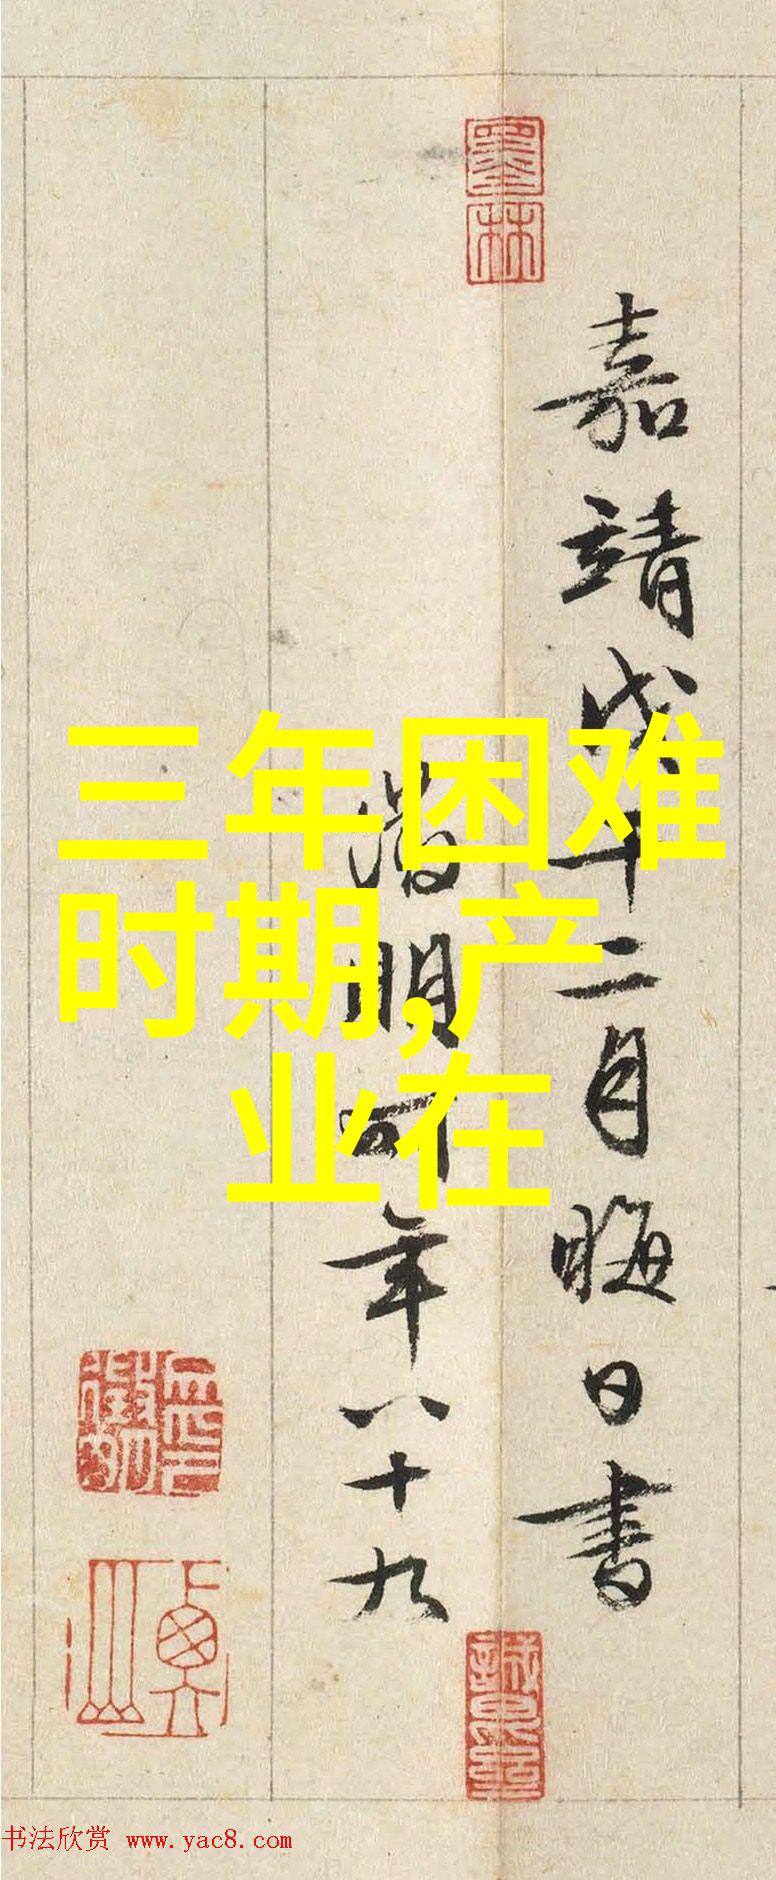 嘉靖戊午二月晦日書
徵明時年八十九
三年困难
时期,产
业在
墨林
书法欣赏 www.yac8.com